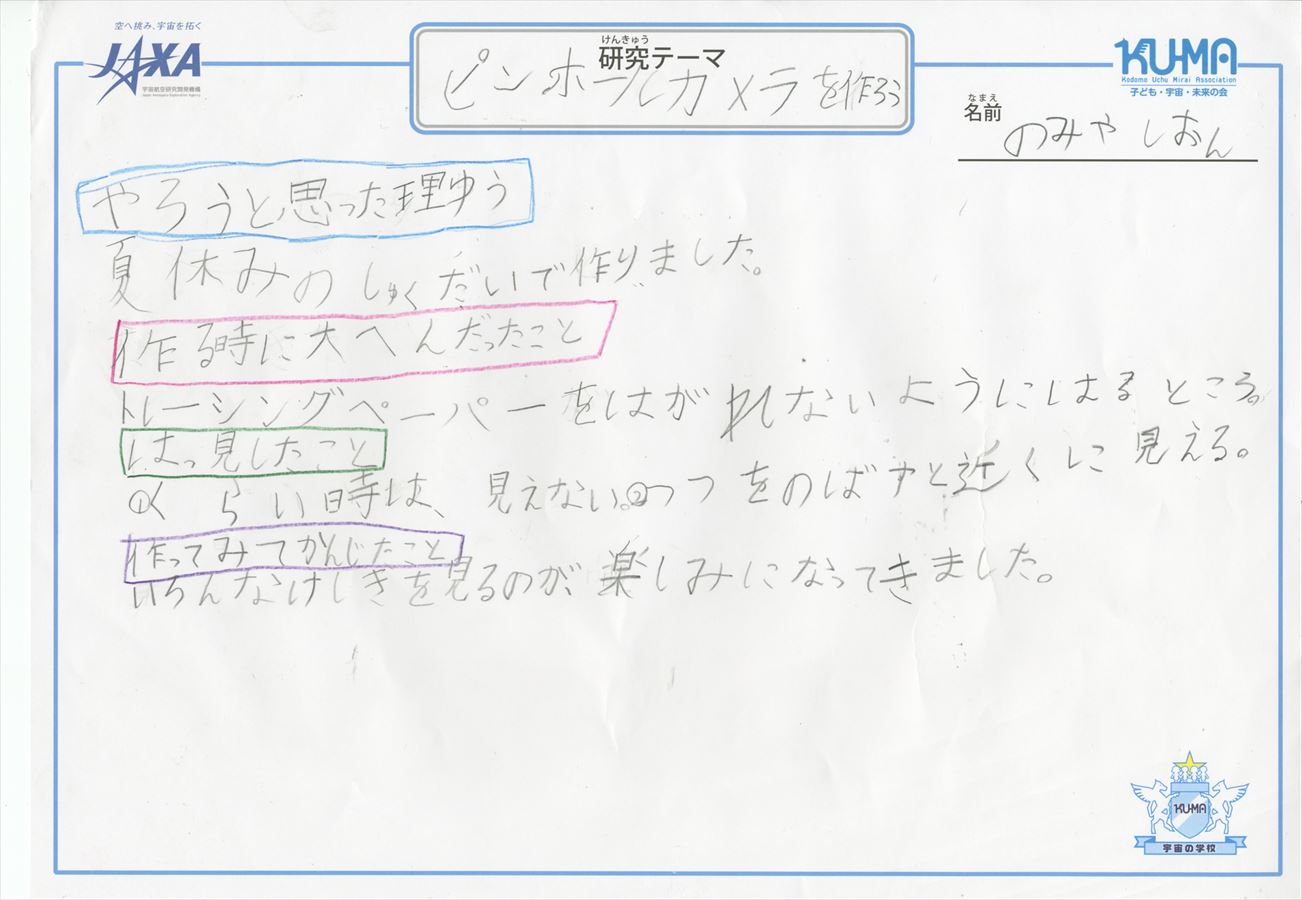 空へ挑み、宇宙を拓く
JAXA
宇宙航空研究開発機構
Japan Aerospace Exploration Agency
けんきゅう
研究テーマ
ピンホールカメラを作ろう
KU-MA
Kodomo Uchu Mirai Association
子ども・宇宙・未来の会
なまえ
名前
のみや しおん
やろうと思った理ゆう
夏休みのしゅくだいで作りました。
作る時に大へんだったこと
トレーシングペーパーをはがれないようにはるところ。
はっ見したこと
①くらい時は、見えない。②つつをのばすと近くに見える。
作ってみてかんじたこと
いろんなけしきを見るのが、楽しみになってきました。
KU-MA
宇宙の学校